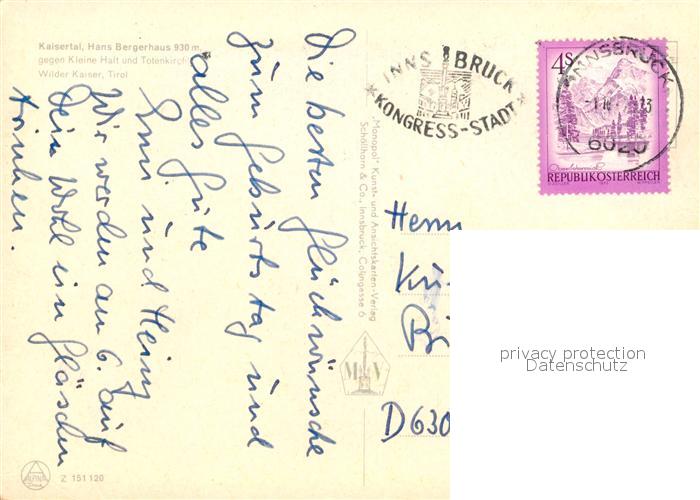 Kaisertal, Hans Bergerhaus 930 m,
gegen Kleine Halt und Totenkirchl
Wilder Kaiser, Tirol
Die besten Glückwünsche
zum Geburtstag und
alles Gute
und Heinz
Wir werden am 6. auf
Dein Wohl ein Gläschen
trinken.
"Monopol" Kunst- und Ansichtskarten-Verlag
Schöllhorn & Co., Innsbruck, Colingasse 6
M V
ALPINA
Z 151 120
INNSBRUCK
KONGRESS-STADT
INNSBRUCK
6020
4S
REPUBLIK ÖSTERREICH
Herrn
D 630
privacy protection
Datenschutz